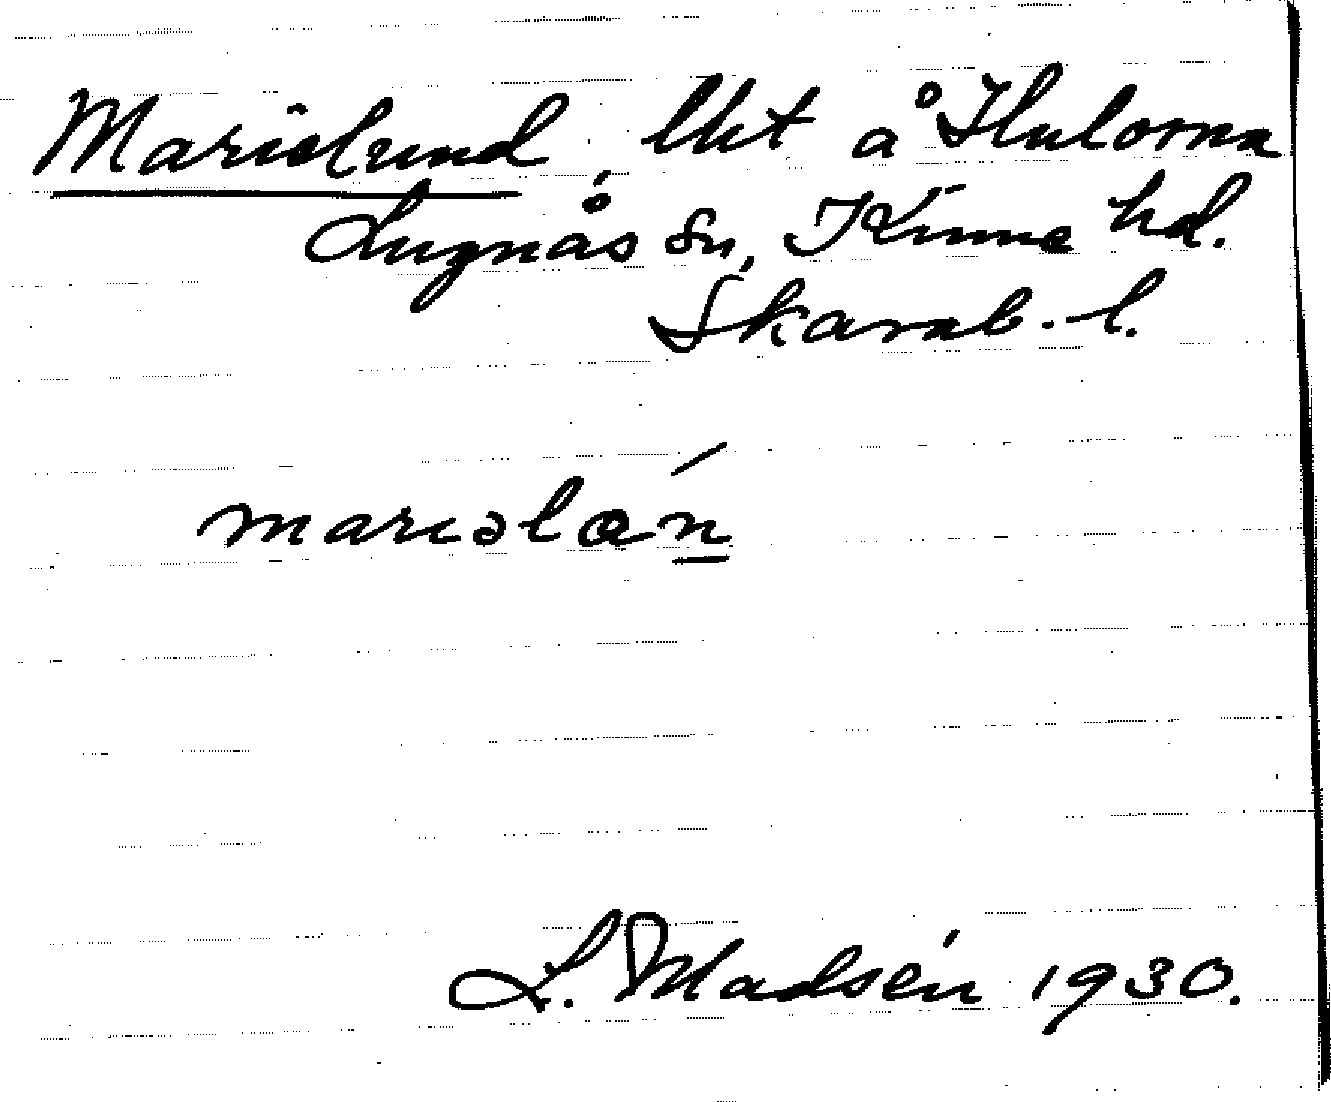 Marielund, lht å Hulorna
Lugnås sn, Kinne hd.
Skarab. l.
mariəlán
L. Madsén 1930.